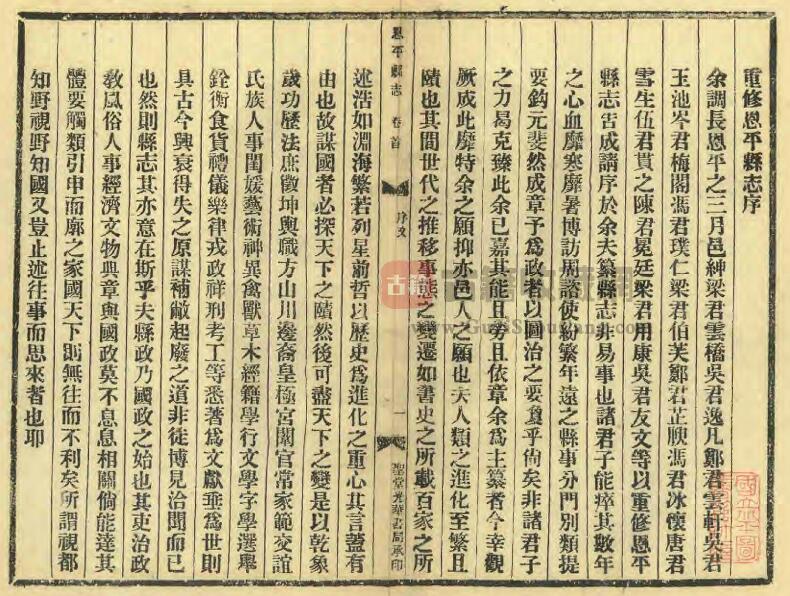 重修恩平縣志序
余調長恩平之三月邑紳梁君雲橋吳君逸凡鄭君雲軒吳君
玉池岑君梅閣馮君璞仁梁君伯芙鄭君芷賾馮君冰懷唐君
雪生伍君貫之陳君冕廷梁君用康吳君友文等以重修恩平
縣志告成請序於余夫纂縣志非易事也諸君子能瘁其數年
之心血靡寒靡暑博訪周諮使紛繁年遠之縣事分門別類提
要鈎元斐然成章予為政者以圖治之要夐乎尚矣非諸君子
之力易克臻此余已嘉其能且勞且依章余為主纂者今幸觀
厥成此靡特余之願抑亦邑人之願也夫人類之進化至繁且
賾也其間世代之推移事態之變遷如書史之所載百家之所
恩平縣志 卷首
序文
一
聖堂光華書局承印
述浩如淵海繁若列星前哲以歷史為進化之重心其言蓋有
由也故謀國者必探天下之賾然後可盡天下之變是以乾象
歲功歷法庶徵坤輿職方山川邊裔皇極宮闈官常家範交誼
氏族人事閨媛藝術神異禽獸草木經籍學行文學字學選舉
銓衡食貨禮儀樂律戎政祥刑考工等悉著為文獻垂為世則
具古今興衰得失之原謀補敝起廢之道非徒博見洽聞而已
也然則縣志其亦意在斯乎夫縣政乃國政之始也其吏治政
教風俗人事經濟文物典章與國政莫不息息相關倘能達其
體要觸類引申而廓之家國天下則無往而不利矣所謂視都
知野視野知國又豈止述往事而思來者也耶
古籍